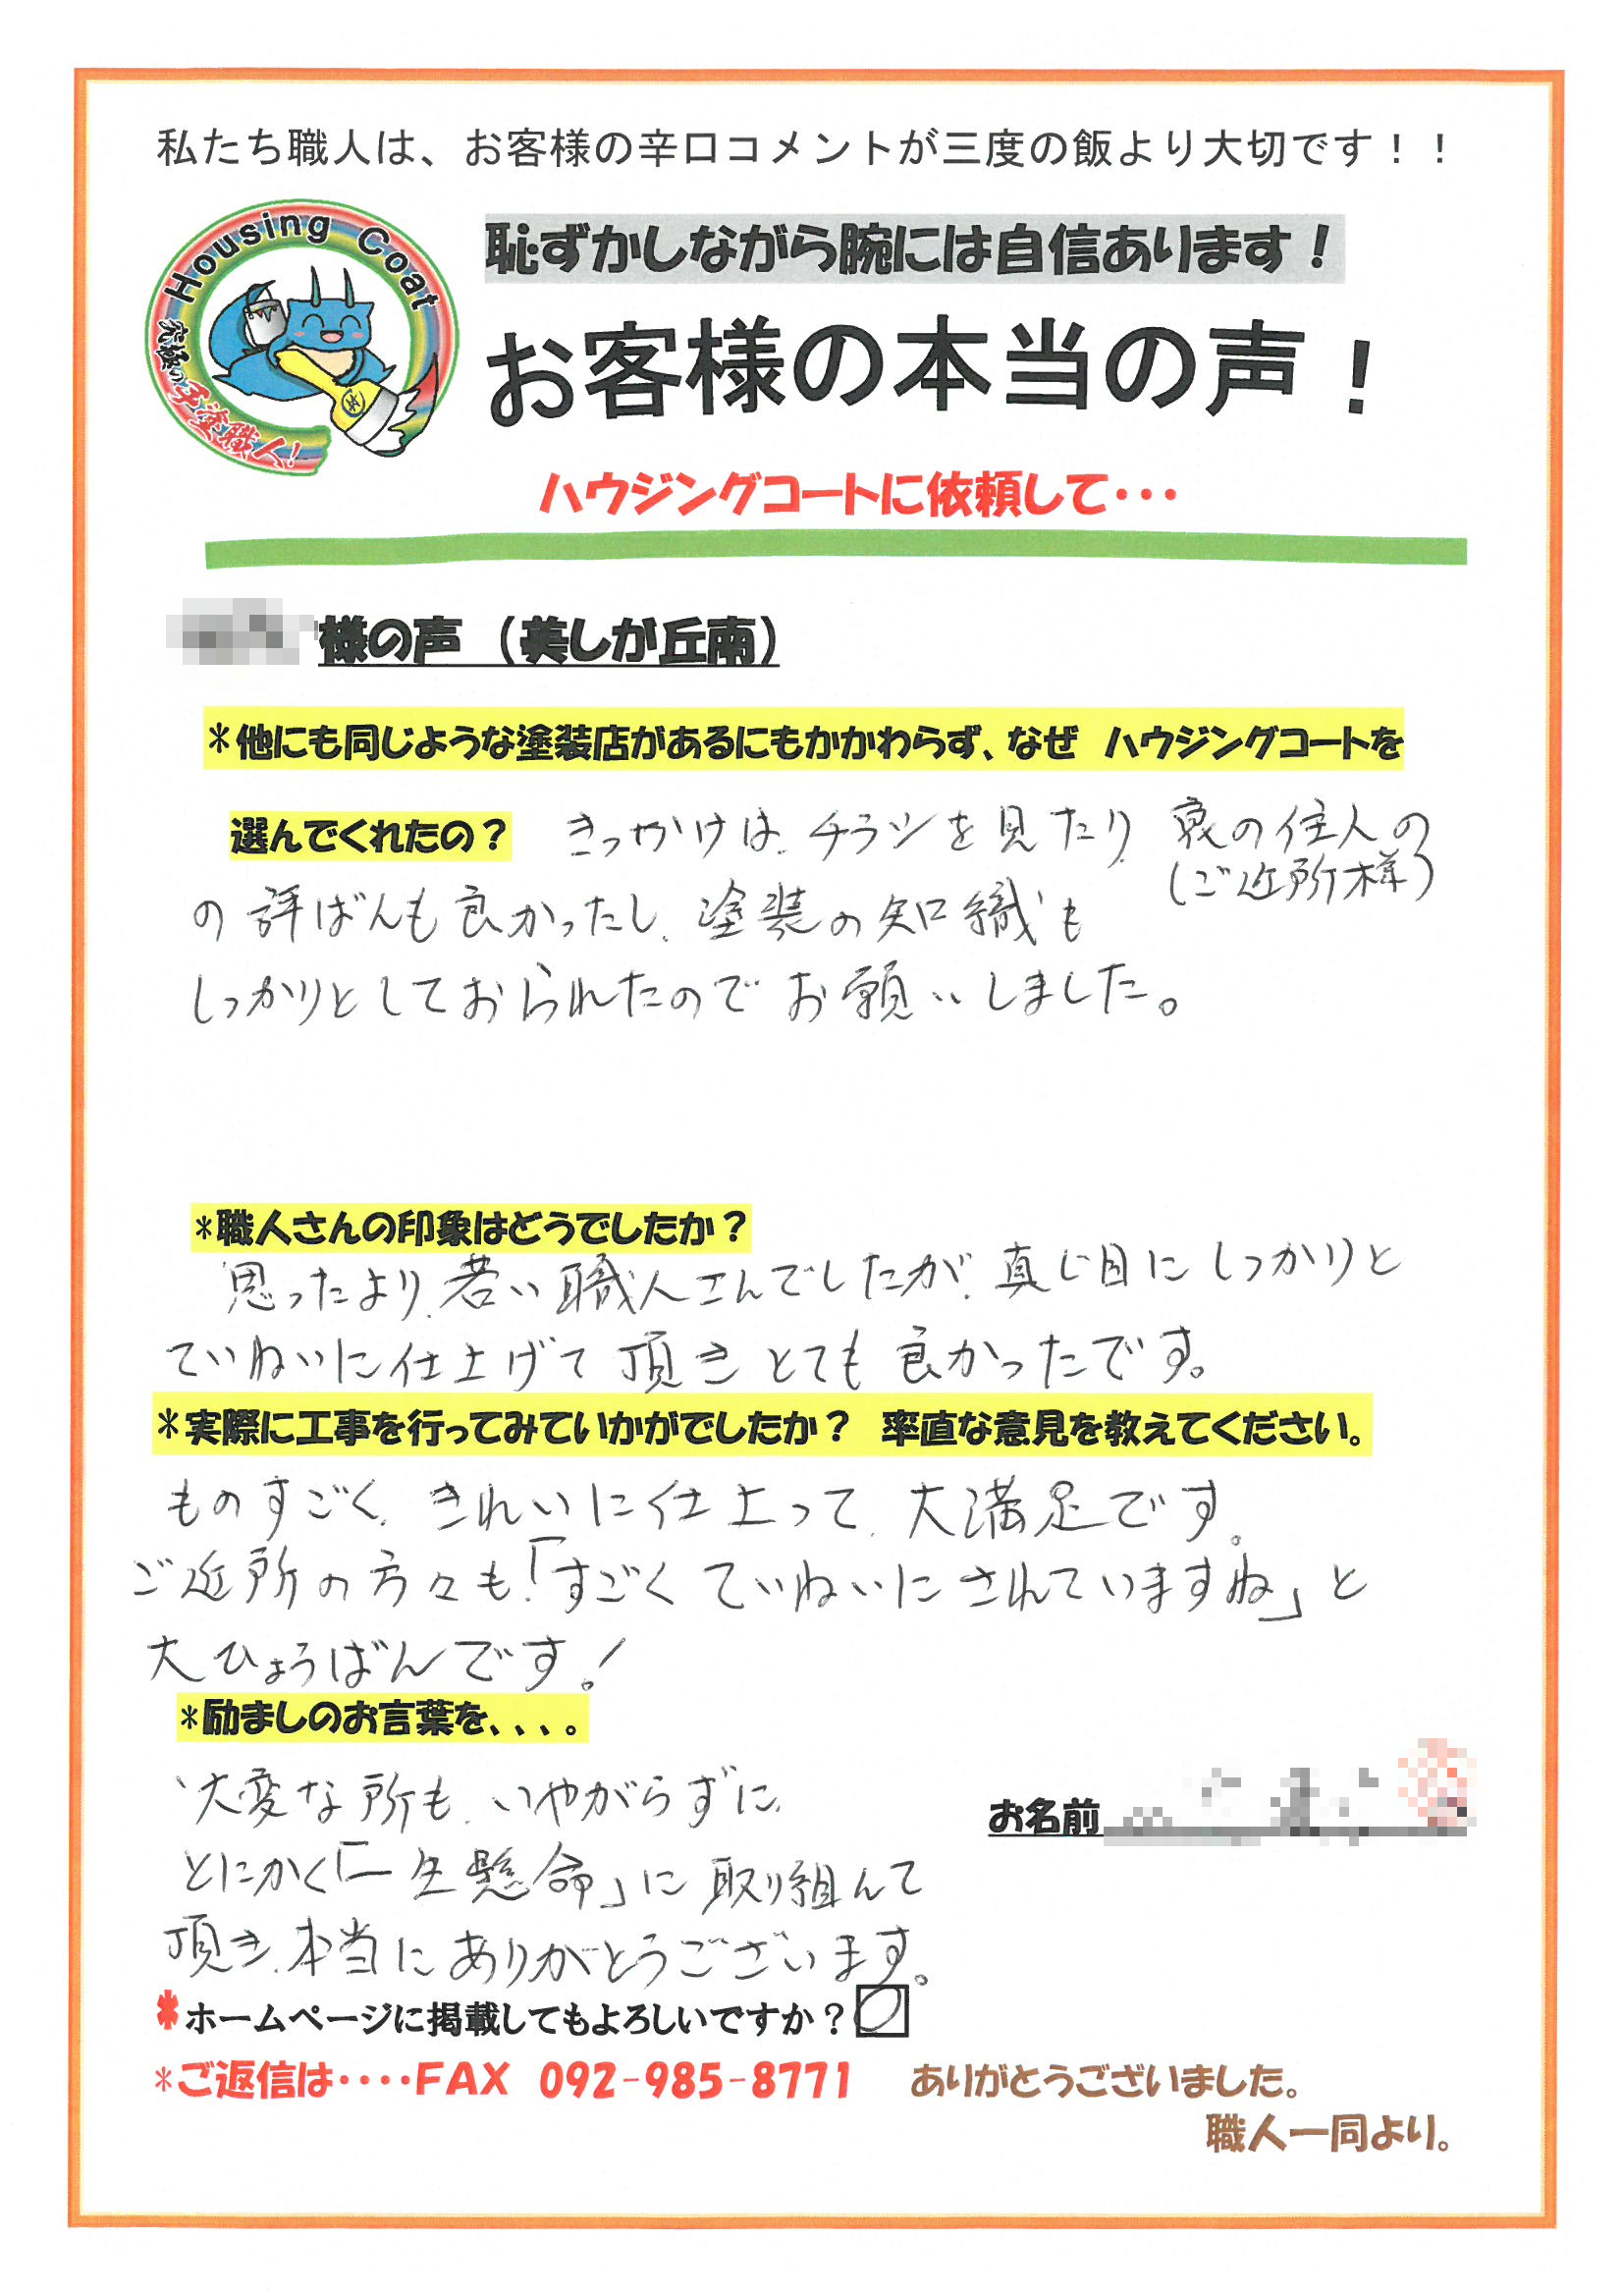 私たち職人は、お客様の辛口コメントが三度の飯より大切です！！
Housing Coat
究極の手塗職人！
恥ずかしながら腕には自信あります！
お客様の本当の声！
ハウジングコートに依頼して・・・
様の声（美しが丘南）
＊他にも同じような塗装店があるにもかかわらず、なぜ　ハウジングコートを
選んでくれたの？　きっかけは、チラシを見たり、裏の住人の
(ご近所様)
の評ばんも良かったし、塗装の知織も
しっかりとしておられたのでお願いしました。
*職人さんの印象はどうでしたか？
思ったより、若い職人さんでしたが、真じ目にしっかりと
ていねいに仕上げて頂きとても良かったです。
＊実際に工事を行ってみていかがでしたか？　率直な意見を教えてください。
ものすごく、きれいに仕上って、大満足です。
ご近所の方々も！「すごくていねいにされていますね」と
大ひょうばんです！
*励ましのお言葉を、、、。
大変な所も、いやがらずに、
とにかく「一生懸命」に取り組んで
頂き、本当にありがとうございます。
お名前
*ホームページに掲載してもよろしいですか？〇
*ご返信は・・・・FAX　092-985-8771　ありがとうございました。
職人一同より。